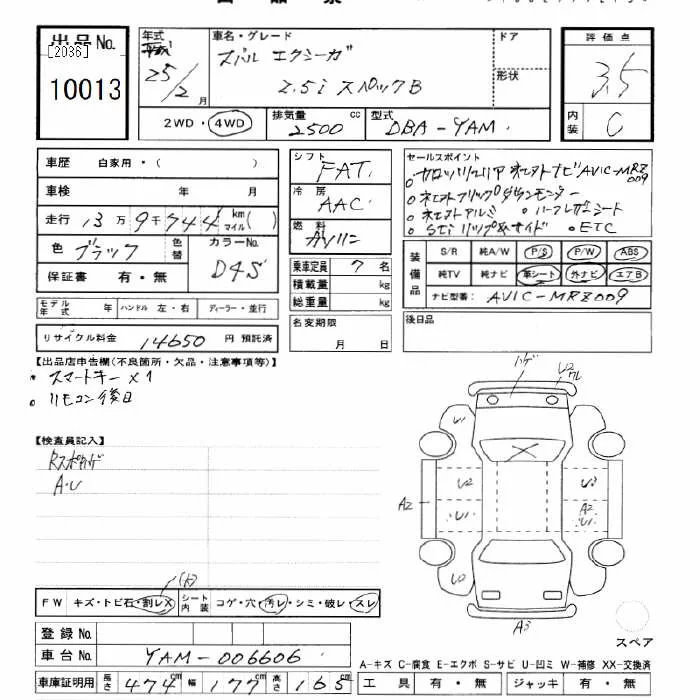 出品No.
[2036]
10013
年式
25/2月
車名・グレード
スバル エクシーガ
2.5i スペックB
ドア
形状
評価点
3.5
内装
C
2WD・4WD
排気量
2500 cc
型式
DBA-YAM
車歴 自家用・( )
車検 年 月
走行 13万9千744 km マイル( )
色 ブラック 色替
カラーNo. D4S
保証書 有・無
モデル年式 年 ハンドル 左・右 ディーラー・並行
リサイクル料金 14650 円 預託済
シフト FAT
冷房 AAC
燃料 ガソリン
乗車定員 7 名
積載量 kg
総重量 kg
名変期限
月 日
セールスポイント
AVIC-MRZ009
ハーフレザーシート
STiリップ&サイド ETC
装備品
S/R 純A/W P/S P/W ABS
純TV 純ナビ 革シート 外ナビ エアB
ナビ型番: AVIC-MRZ009
後日品
【出品店申告欄(不良箇所・欠品・注意事項等)】
スマートキー×1
リモコン後日
【検査員記入】
A・U
ハゲ
U1
U2
U3
A2
A2
U1
U1
A3
スペア
FW キズ・トビ石・割レX シート内装 コゲ・穴・汚レ・シミ・破レ・スレ
登録No.
車台No. YAM-006606
車庫証明用 長さ 474 cm 幅 177 cm 高さ 165 cm
A-キズ C-腐食 E-エクボ S-サビ U-凹ミ W-補修 XX-交換済
工具 有・無 ジャッキ 有・無